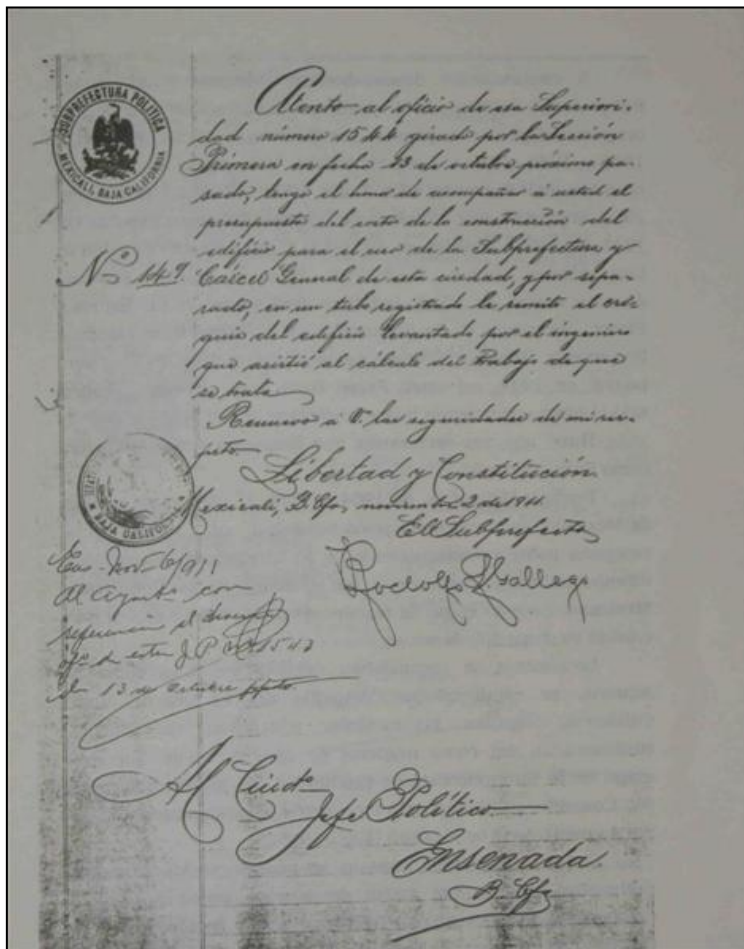 SUBPREFECTURA POLITICA
MEXICALI, BAJA CALIFORNIA
Atento al oficio de esa Superiori-
dad número 1544 girado por la Sección
Primera en fecha 13 de octubre próximo pa-
sado, tengo el honor de acompañar á usted el
presupuesto del costo de la construcción del
edificio para el uso de la Subprefectura y
Nº 149.
Cárcel General de esta ciudad, y por sepa-
rado, en un tubo registrado le remito el cro-
quis del edificio levantado por el ingeniero
que asistió al cálculo del trabajo de que
se trata
Renuevo á U. las seguridades de mi res-
peto
Libertad y Constitución.
Mexicali, B. Cfa, noviembre 2 de 1911.
El Subprefecto,
Rodolfo L. Gallego
BAJA CALIFORNIA
Ens. Nov. 6/911
Al Ayunto. con
referencia al
ofo. de esta J. P. No. 1543
de 13 de octubre ppdo.
Al Ciudo.
Jefe Político.
Ensenada.
B. Cfa.